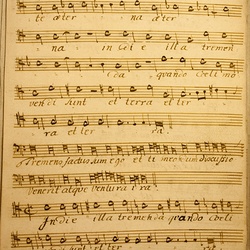 te æter na æter
na in die illa tremen
da quando cœli mo
vendi sunt et terra et ter
ra et ter ra.
Tremens factus sum ego et ti meo cum discussio
venerit atque ventura ira.
In die illa tremenda quando cœli
sunt et ter